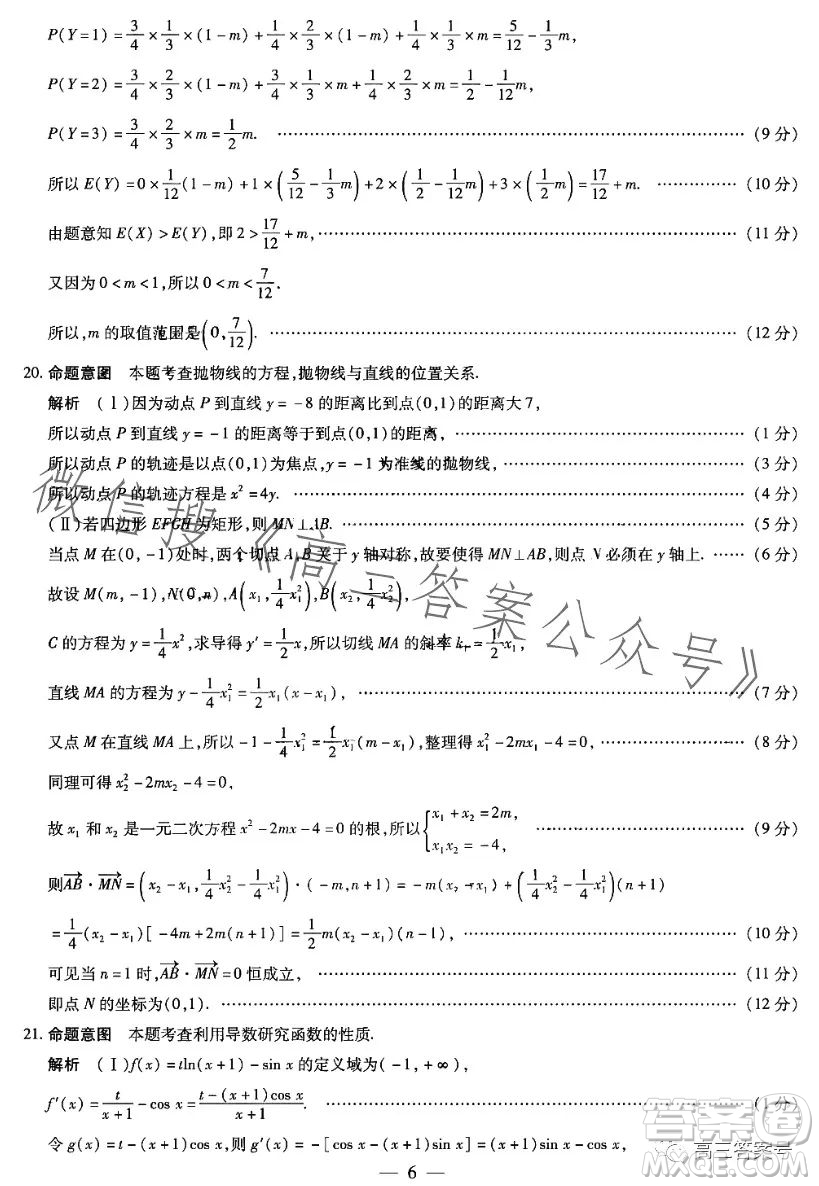 P(Y=1)=3/4×1/3×(1-m)+1/4×2/3×(1-m)+1/4×1/3×m=5/12-1/3m,
P(Y=2)=3/4×2/3×(1-m)+3/4×1/3×m+1/4×2/3×m=1/2-1/12m,
P(Y=3)=3/4×2/3×m=1/2m. ……(9分)
所以E(Y)=0×1/12(1-m)+1×(5/12-1/3m)+2×(1/2-1/12m)+3×(1/2m)=17/12+m. ……(10分)
由题意知E(X)>E(Y),即2>17/12+m, ……(11分)
又因为0<m<1,所以0<m<7/12.
所以,m的取值范围是(0,7/12). ……(12分)
20. 命题意图 本题考查抛物线的方程,抛物线与直线的位置关系.
解析 (Ⅰ)因为动点P到直线y=-8的距离比到点(0,1)的距离大7,
所以动点P到直线y=-1的距离等于到点(0,1)的距离, ……(1分)
所以动点P的轨迹是以点(0,1)为焦点,y=-1为准线的抛物线, ……(3分)
所以动点P的轨迹方程是x²=4y. ……(4分)
(Ⅱ)若四边形EFGH为矩形,则MN⊥AB. ……(5分)
当点M在(0,-1)处时,两个切点A,B关于y轴对称,故要使得MN⊥AB,则点N必须在y轴上. ……(6分)
故设M(m,-1),N(0,n),A(x₁,1/4x₁²),B(x₂,1/4x₂²),
C的方程为y=1/4x²,求导得y′=1/2x,所以切线MA的斜率k₁=1/2x₁,
直线MA的方程为y-1/4x₁²=1/2x₁(x-x₁), ……(7分)
又点M在直线MA上,所以-1-1/4x₁²=1/2x₁(m-x₁),整理得x₁²-2mx₁-4=0, ……(8分)
同理可得x₂²-2mx₂-4=0,
故x₁和x₂是一元二次方程x²-2mx-4=0的根,所以{x₁+x₂=2m, x₁x₂=-4, ……(9分)
则AB→·MN→=(x₂-x₁,1/4x₂²-1/4x₁²)·(-m,n+1)=-m(x₂-x₁)+(1/4x₂²-1/4x₁²)(n+1)
=1/4(x₂-x₁)[-4m+2m(n+1)]=1/2m(x₂-x₁)(n-1), ……(10分)
可见当n=1时,AB→·MN→=0恒成立, ……(11分)
即点N的坐标为(0,1). ……(12分)
21. 命题意图 本题考查利用导数研究函数的性质.
解析 (Ⅰ)f(x)=tln(x+1)-sin x的定义域为(-1,+∞),
f′(x)=t/(x+1)-cos x=(t-(x+1)cos x)/(x+1). ……(1分)
令g(x)=t-(x+1)cos x,则g′(x)=-[cos x-(x+1)sin x]=(x+1)sin x-cos x,
— 6 —
微信搜《高三答案公众号》
高三答案号
答案圈
MXQE.COM